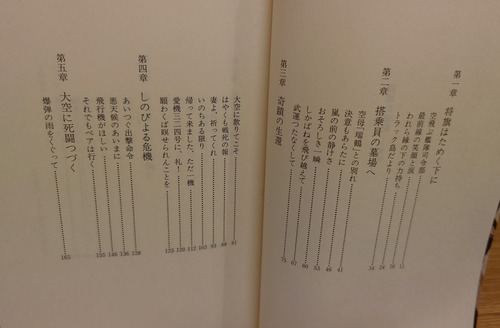 第一章　将旗はためく下に
空飛ぶ艦隊司令部 11
最前線の笑顔と涙
われら縁の下の力持ち 24
トラック島だより 34
第二章　搭乗員の墓場へ
空母「瑞鶴」との別れ 41
決意もあらたに 46
嵐の前の静けさ 53
おそろしき一瞬 60
しかばねを飛び越えて 67
武運つたなくして 75
第三章　奇蹟の生還
大空に散りてこそ 81
はやくも戦死の報 88
妻よ、祈ってくれ 93
いのちある限り 103
帰って来ました、ただ一機 112
愛機三二四号に、礼！ 120
願わくば瞑せられんことを
第四章　しのびよる危機
あいつぐ出撃命令 128
悪天候のあいまに 136
飛行機がほしい 146
それでもペアは行く 155
第五章　大空に死闘つづく
爆弾の雨をくぐって 165